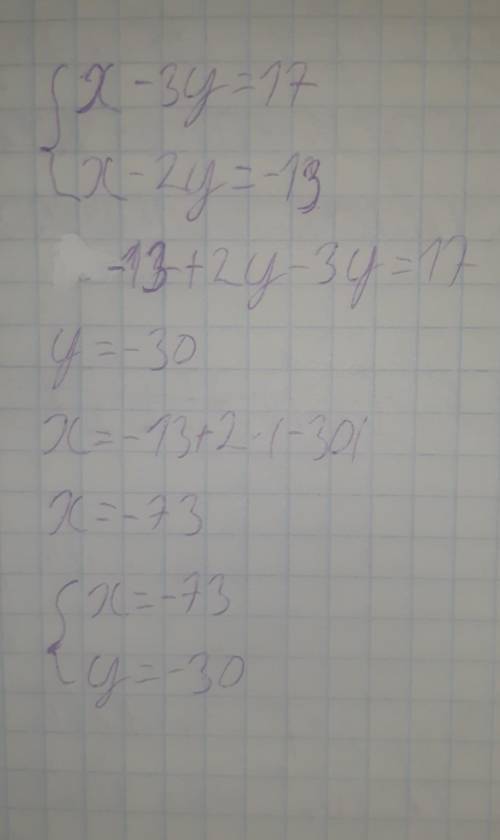 {x - 3y = 17
x - 2y = -13
-13 + 2y - 3y = 17
y = -30
x = -13 + 2 · (-30)
x = -73
{x = -73
y = -30